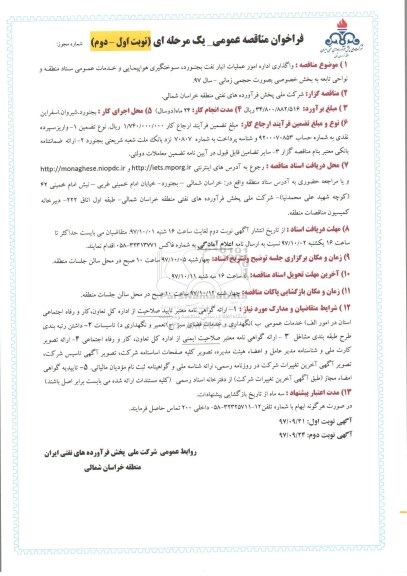 فراخوان مناقصه عمومی_ یک مرحله ای (نوبت اول - دوم)
شماره مجوز:
۱ ) موضوع مناقصه : واگذاری اداره امور عملیات انبار نفت بجنورد، سوختگیری هواپیمایی و خدمات عمومی ستاد منطقه و
نواحی تابعه به بخش خصوصی بصورت حجمی زمانی - سال ۹۷.
۲ ) مناقصه گزار: شرکت ملی پخش فرآورده های نفتی منطقه خراسان شمالی.
۳ ) مبلغ برآورد: ۳۴/۸۰۰/۸۸۲/۵۱۶ ریال ۴) مدت انجام کار: ۲۴ ماه(دوسال) ۵) محل اجرای کار : بجنورد.شیروان.اسفراین
۶) نوع و مبلغ تضمین فرآیند ارجاع کار: مبلغ تضمین فرآیند ارجاع کار ۱/۷۴۰/۰۰۰/۰۰۰ ریال. نوع تضمین ۱- واریزسپرده
نقدی به شماره حساب ۹۲۰۰۰۷۰۸۵۳ و شناسه پرداخت به شماره ۷۰۸۰۷ نزد بانک ملت شعبه شریعتی بجنورد ۲- ارائه ضمانتنامه
بانکی معتبر بنام مناقصه گزار ۳- سایر تضامین قابل قبول در آیین نامه تضمین معاملات دولتی.
۷ ) محل دریافت اسناد مناقصه : رجوع به آدرس های اینترنتی http://iets.mporg.ir و http://monaghese.niopdc.ir
و یا مراجعه حضوری به آدرس ستاد منطقه واقع در: خراسان شمالی - بجنورد- خیابان امام خمینی غربی - نبش امام خمینی ۴۲
(کوچه شهید علی محمدنیا)- شرکت ملی پخش فرآورده های نفتی منطقه خراسان شمالی- طبقه اول اتاق ۲۲۲- دبیرخانه
کمیسیون مناقصات منطقه.
۸) مهلت دریافت اسناد : از تاریخ انتشار آگهی نوبت دوم لغایت ساعت ۱۶ شنبه ۹۷/۱۰/۰۱ متقاضیان می بایست حداکثر تا
ساعت ۱۶ یکشنبه ۹۷/۱۰/۰۲ نسبت به ارسال نامه اعلام آمادگی به شماره فاکس ۰۵۸-۳۲۳۱۳۷۷۱ اقدام نمایند.
۹) زمان و مکان برگزاری جلسه توضیح وتشریح اسناد: چهارشنبه ۹۷/۱۰/۰۵ ساعت ۱۰ صبح در محل سالن جلسات منطقه.
۱۰) آخرین مهلت تحویل اسناد مناقصه : تا ساعت ۱۶ سه شنبه ۹۷/۱۰/۱۱
۱۱) زمان و مکان بازگشایی پاکات مناقصه: چهارشنبه ۹۷/۱۰/۱۲ ساعت ۱۰ صبح در محل سالن جلسات منطقه.
۱۲ ) شرایط متقاضیان و مدارک مورد نیاز : ۱- ارائه گواهی نامه تایید صلاحیت از اداره کل تعاون، کار و رفاه اجتماعی
استان در امور الف) خدمات عمومی ب) نگهداری و خدمات فضای سبز ج) تعمیر و نگهداری د) تاسیسات ۲- داشتن رتبه بندی
طرح طبقه بندی مشاغل ۳ - ارائه گواهی نامه معتبر صلاحیت ایمنی از اداره کل تعاون، کار و رفاه اجتماعی ۴- ارائه تصویر
کارت ملی و شناسنامه مدیر عامل و اعضاء هیئت مدیره، تصویر کلیه صفحات اساسنامه شرکت، تصویر آگهی تاسیس شرکت،
تصویر آگهی آخرین تغییرات شرکت در روزنامه رسمی، ارائه شناسه ملی و گواهینامه ثبت نام مؤدیان مالیاتی. ۵- تاییدیه گواهی
امضاء مجاز (طبق آگهی آخرین تغییرات شرکت) از دفترخانه اسناد رسمی (کلیه مستندات ارائه شده می بایست برابر اصل باشند)
۱۳) مدت اعتبار پیشنهاد : سه ماه از تاریخ بازگشایی پیشنهادات.
در صورت هرگونه ابهام با شماره تلفن۱۲-۰۵۸-۳۲۳۲۵۷۱۱ داخلی ۲۰۰ تماس حاصل فرمایند.
آگهی نوبت اول: ۹۷/۰۹/۲۱
آگهی نوبت دوم: ۹۷/۰۹/۲۴
روابط عمومی شرکت ملی پخش فرآورده های نفتی ایران
منطقه خراسان شمالی